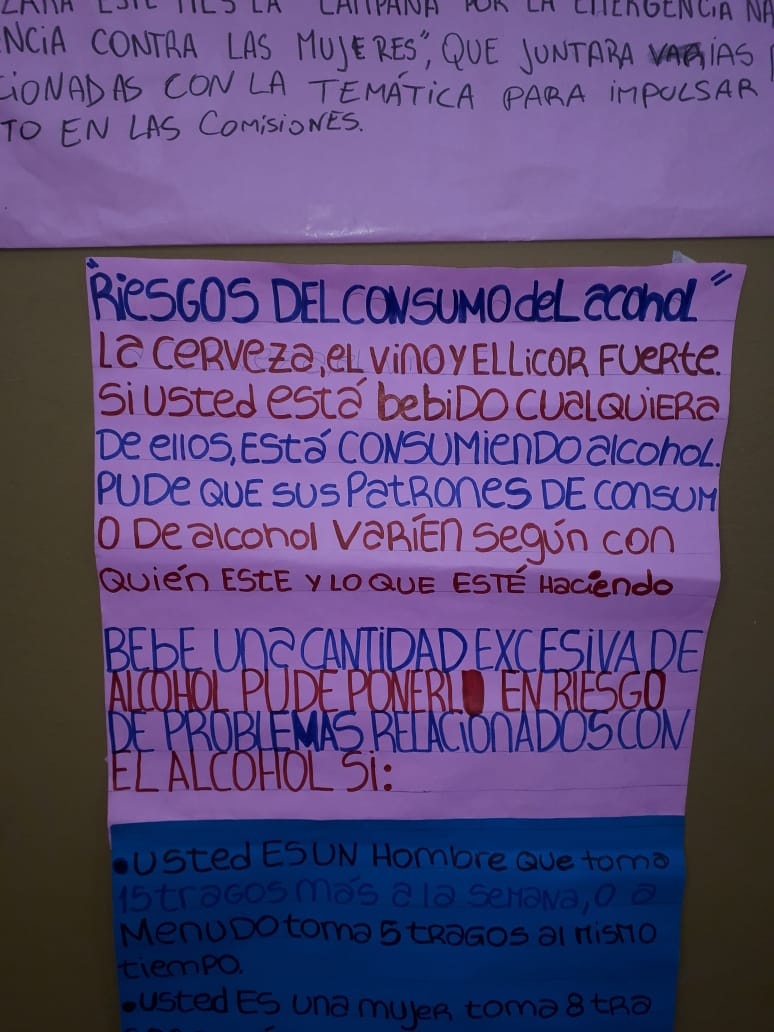 ESTE MES LA "CAMPAÑA POR LA EMERGENCIA NA
NCIA CONTRA LAS MUJERES", QUE JUNTARA VARIAS
CIONADAS CON LA TEMÁTICA PARA IMPULSAR
TO EN LAS COMISIONES.
"RIESGOS DEL CONSUMO del acohol"
La cerveza, el vino y el licor fuerte.
Si usted está bebido cualquiera
De ellos, está consumiendo alcohol.
Pude que sus patrones de consum
o de alcohol varíen según con
quién este y lo que esté haciendo
BEBE UNA CANTIDAD EXCESIVA DE
ALCOHOL PUDE PONERLO EN RIESGO
DE PROBLEMAS RELACIONADOS CON
EL ALCOHOL SI:
•Usted ES UN Hombre que toma
15 tragos más a la semana, o a
Menudo toma 5 tragos al mismo
tiempo.
•Usted ES una mujer toma 8 tra